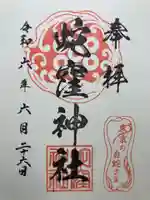 奉拝
蛇窪神社
令和六年六月二十六日